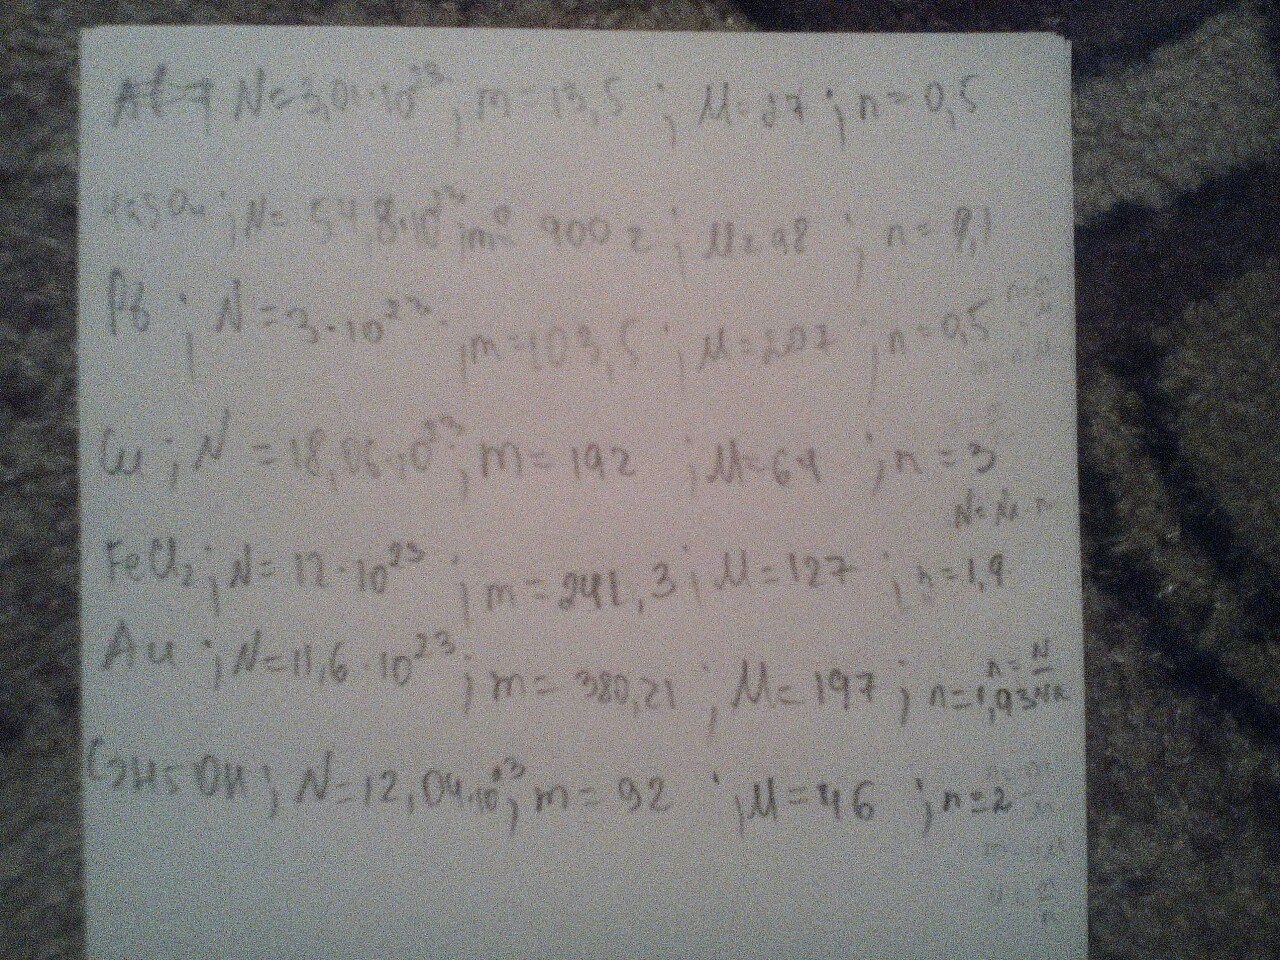 Al → N=3,01·10²³; m=13,5; M=27; n=0,5
H₂SO₄; N=54,8·10²³; m= 900 г; M=98; n=9,1
Pb; N=3·10²³; m=103,5; M=207; n=0,5
Cu; N=18,06·10²³; m=192; M=64; n=3
N=Nₐ·n
FeCl₂; N=12·10²³; m=241,3; M=127; n=1,9
Au; N=11,6·10²³; m=380,21; M=197; n=1,93
n=N/Na
C₂H₅OH; N=12,04·10²³; m=92; M=46; n=2